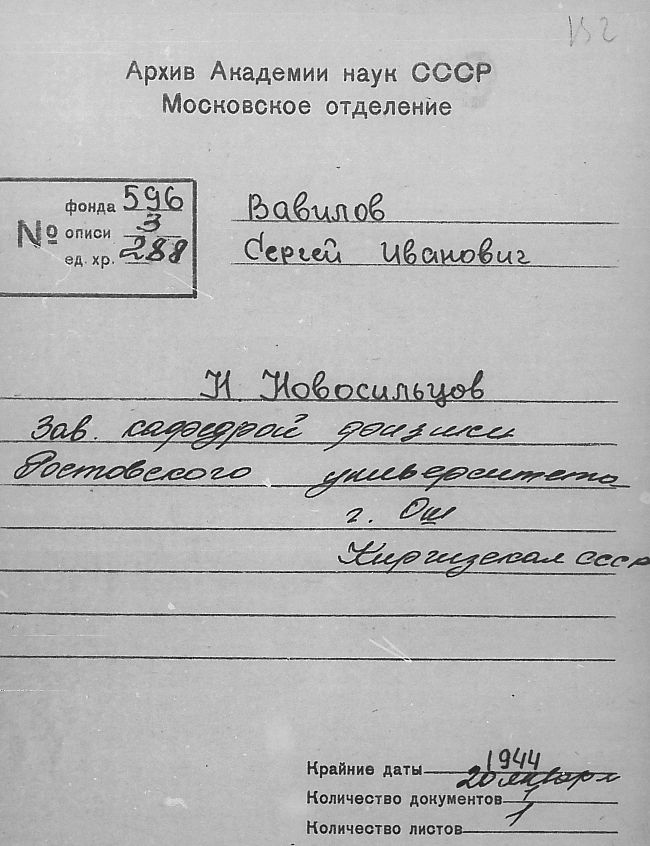 152
Архив Академии наук СССР
Московское отделение
№
фонда 596
описи 3
ед. хр. 288
Вавилов
Сергей Иванович
Н. Новосильцов
Зав. кафедрой физики
Ростовского университета
г. Ош
Киргизская СССР
Крайние даты 1944
20 января
Количество документов 1
Количество листов 1